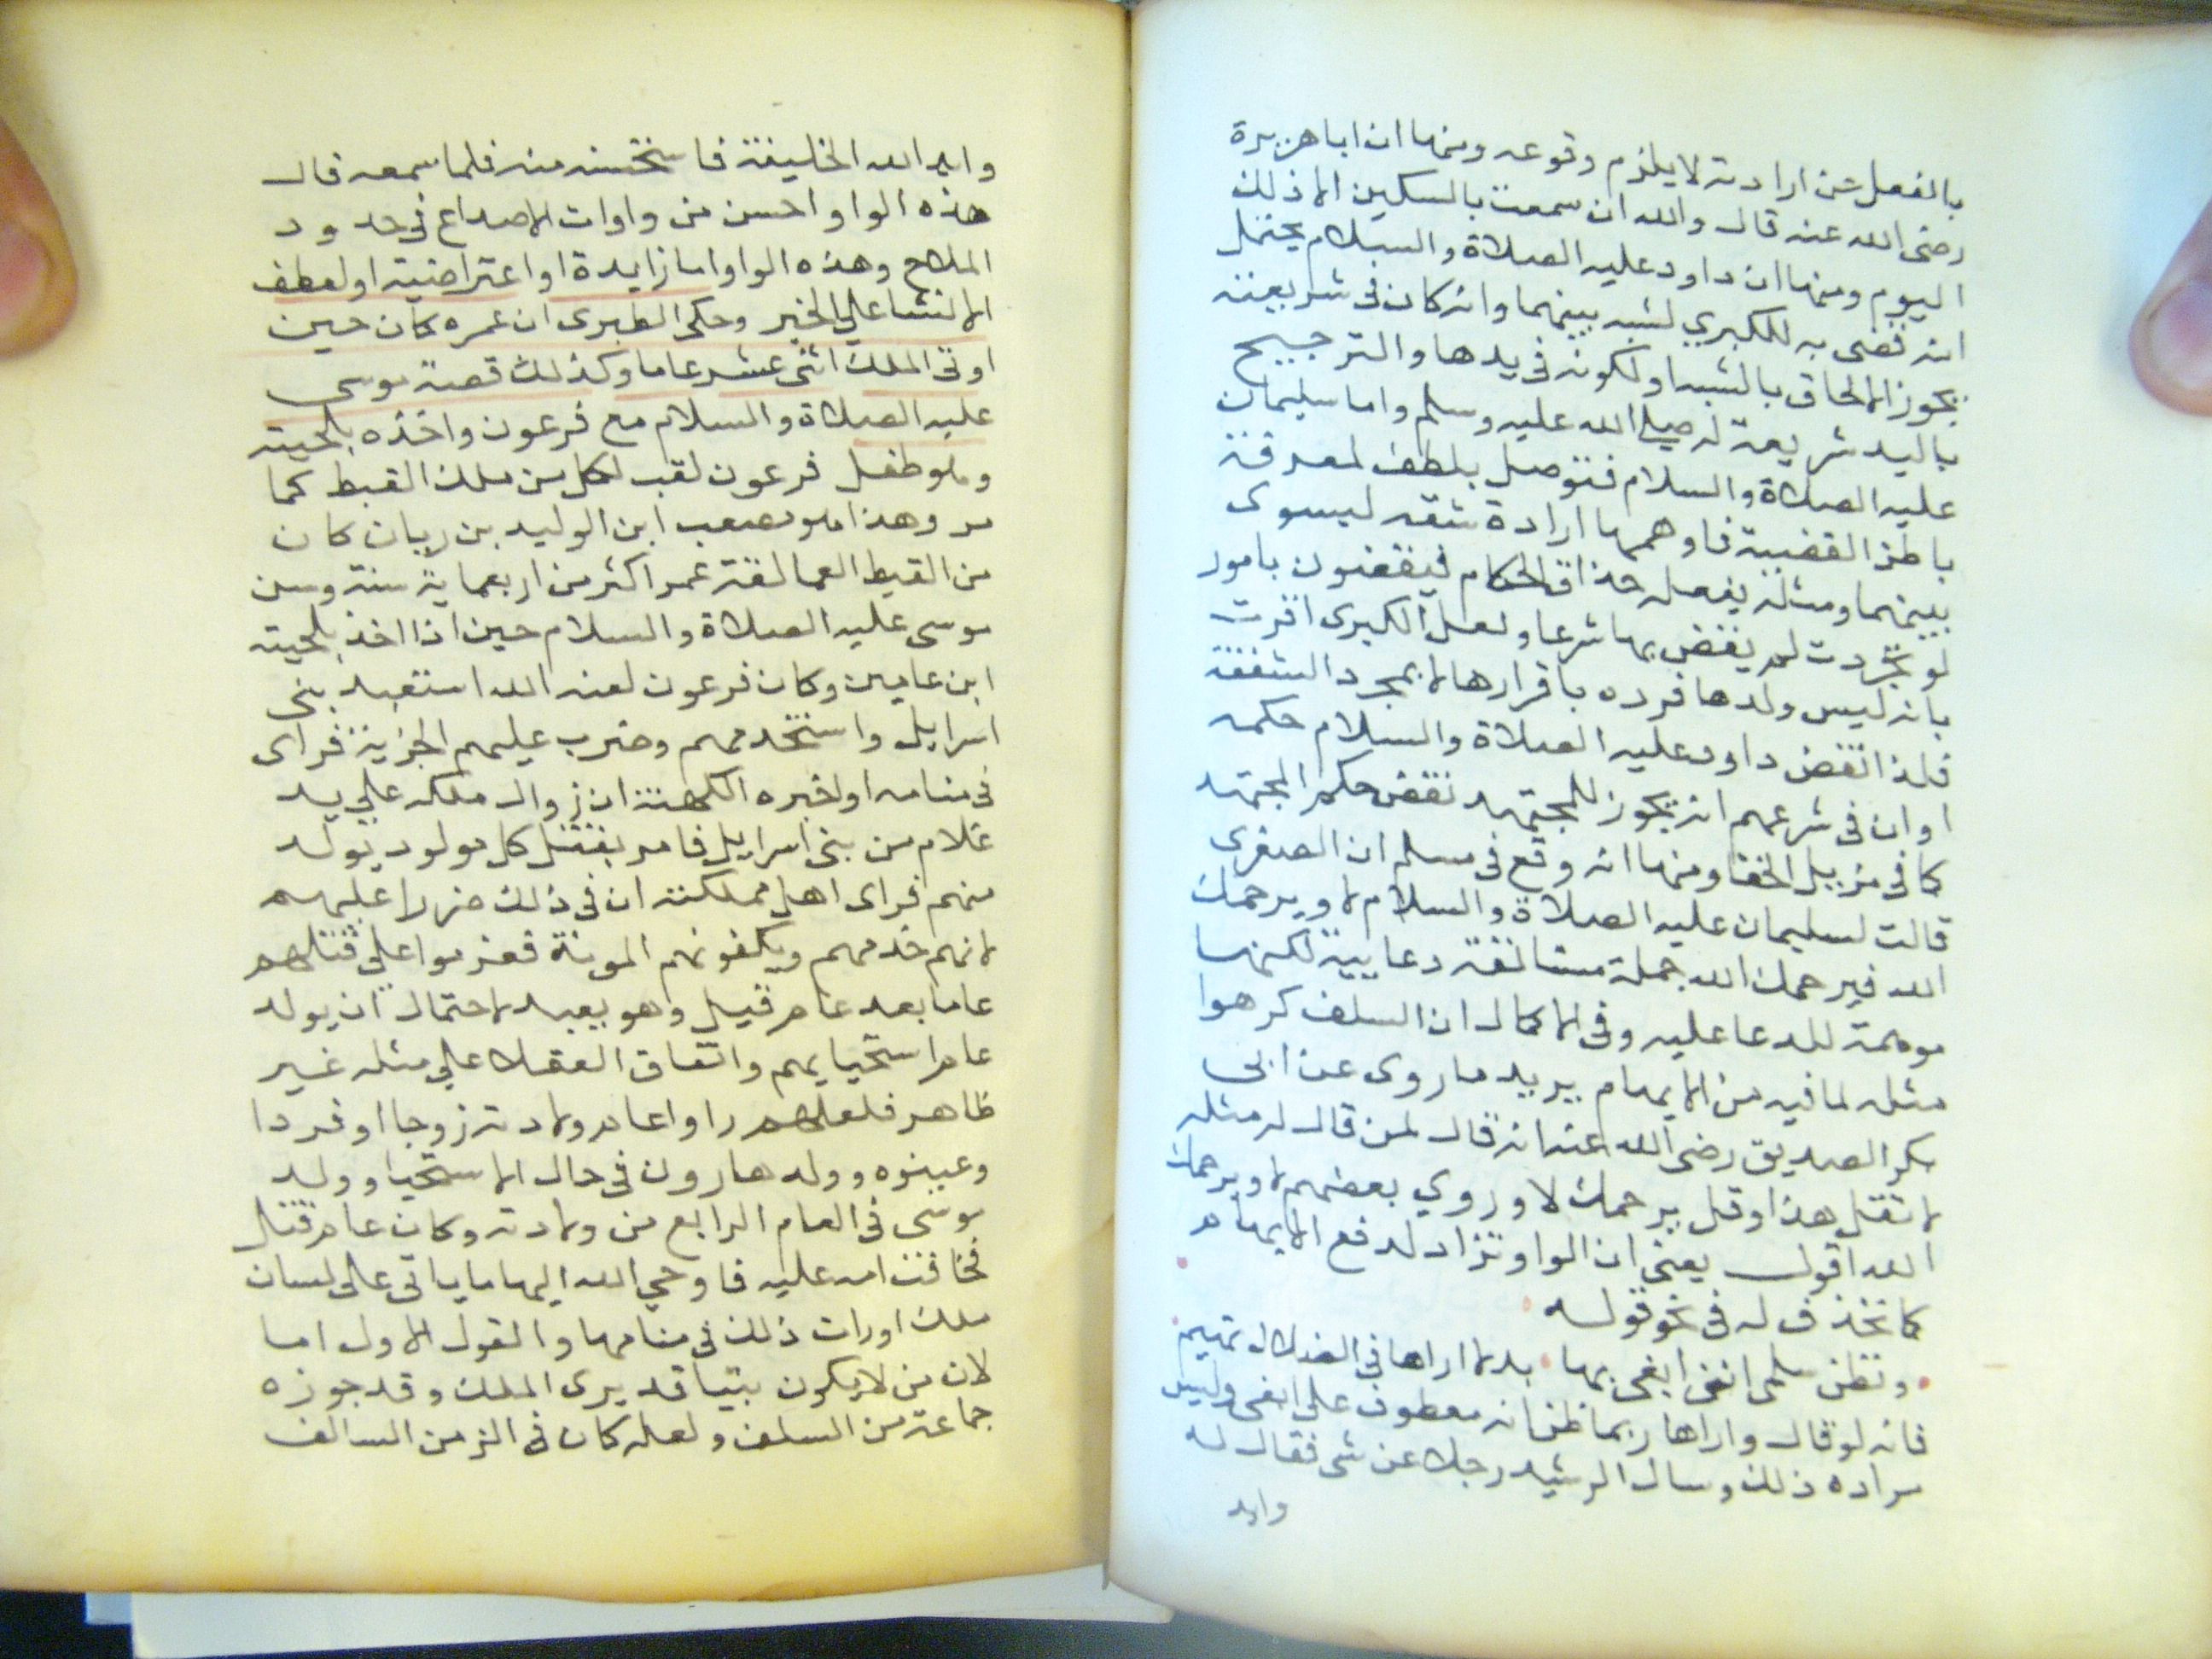 بالفعل عن ارادته لا يلزم وقوعه ومنها ان ابا هريرة
رضى الله عنه قال والله ان سمعت بالسكين الا ذلك
اليوم ومنها ان داود عليه الصلاة والسلام يحتمل
انه قضى به للكبري لشبه بينهما وانه كان فى شريعته
يجوز الالحاق بالشبه او لكونه فى يدها والترجيح
باليد شريعة له صلى الله عليه وسلم واما سليمان
عليه الصلاة والسلام فتوصل بلطف لمعرفة
باطن القضية فاوهمها ارادة شقه ليسوى
بينهما ومثله يفعله حذاق الحكام فيقضون بامور
لو تجردت لم يقض بها شرعا ولعل الكبرى اقرت
بانه ليس ولدها فرده باقرارها لا بمجرد الشفقة
فلذا نقض داود عليه الصلاة والسلام حكمه
او ان فى شرعهم انه يجوز للمجتهد نقض حكم المجتهد
كما فى مزيل الخفا ومنها انه وقع فى مسلم ان الصغرى
قالت لسليمان عليه الصلاة والسلام لا ويرحمك
الله فيرحمك الله جملة مستانفة دعايية لكنها
موهمة للدعا عليه وفى الاكمال ان السلف كرهوا
مثله لما فيه من الايهام يريد ما روى عن ابى
بكر الصديق رضى الله عنه انه قال لمن قال له مثله
لا تقل هذا وقل يرحمك لا وروي بعضهم لا ويرحمك
الله اقول يعنى ان الواو تزاد لدفع الايهام
كما تحذف له فى نحو قوله
وتظن سلمى اننى ابغى بها بدلا اراها فى الضلال تهيم
فانه لو قال واراها ربما ظن انه معطوف على ابغى وليس
مراده ذلك وسال الرشيد رجلا عن شى فقال له
وايد
وايد الله الخليفة فاستحسنه منه فلما سمعه قال
هذه الواو احسن من واوات الاصداع فى خدود
الملاح وهذه الواو اما زايدة او اعتراضية او لعطف
الانشا علي الخبر وحكى الطبرى ان عمره كان حين
اوتى الملك اثنى عشر عاما وكذلك قصة موسى
عليه الصلاة والسلام مع فرعون واخذه بلحيته
وهو طفل فرعون لقب لكل من ملك القبط كما
مر وهذا هو مصعب ابن الوليد بن ريان كان
من القبط العمالقة عمر اكثر من اربعماية سنة وسن
موسى عليه الصلاة والسلام حين اذا اخذ بلحيته
ابن عامين وكان فرعون لعنه الله استعبد بنى
اسرايل واستخدمهم وضرب عليهم الجزية فراى
فى منامه او اخبره الكهنة ان زوال ملكه علي يد
غلام من بنى اسرايل فامر بقتل كل مولود يولد
منهم فراى اهل مملكته ان فى ذلك ضررا عليهم
لانهم خدمهم ويكفونهم المونة فعزموا على قتلهم
عاما بعد عام قيل وهو بعيد لاحتمال ان يولد
عام استحيايهم واتفاق العقلا علي مثله غير
ظاهر فلعلهم راوا عام ولادته زوجا او فردا
وعينوه وولد هارون فى حال الاستحيا وولد
موسى فى العام الرابع من ولادته وكان عام قتل
فخافت امه عليه فاوحي الله اليها ما ياتى على لسان
ملك او رات ذلك فى منامها والقول الاول اما
لان من لا يكون نبيا قد يرى الملك وقد جوزه
جماعة من السلف ولعله كان فى الزمن السالف